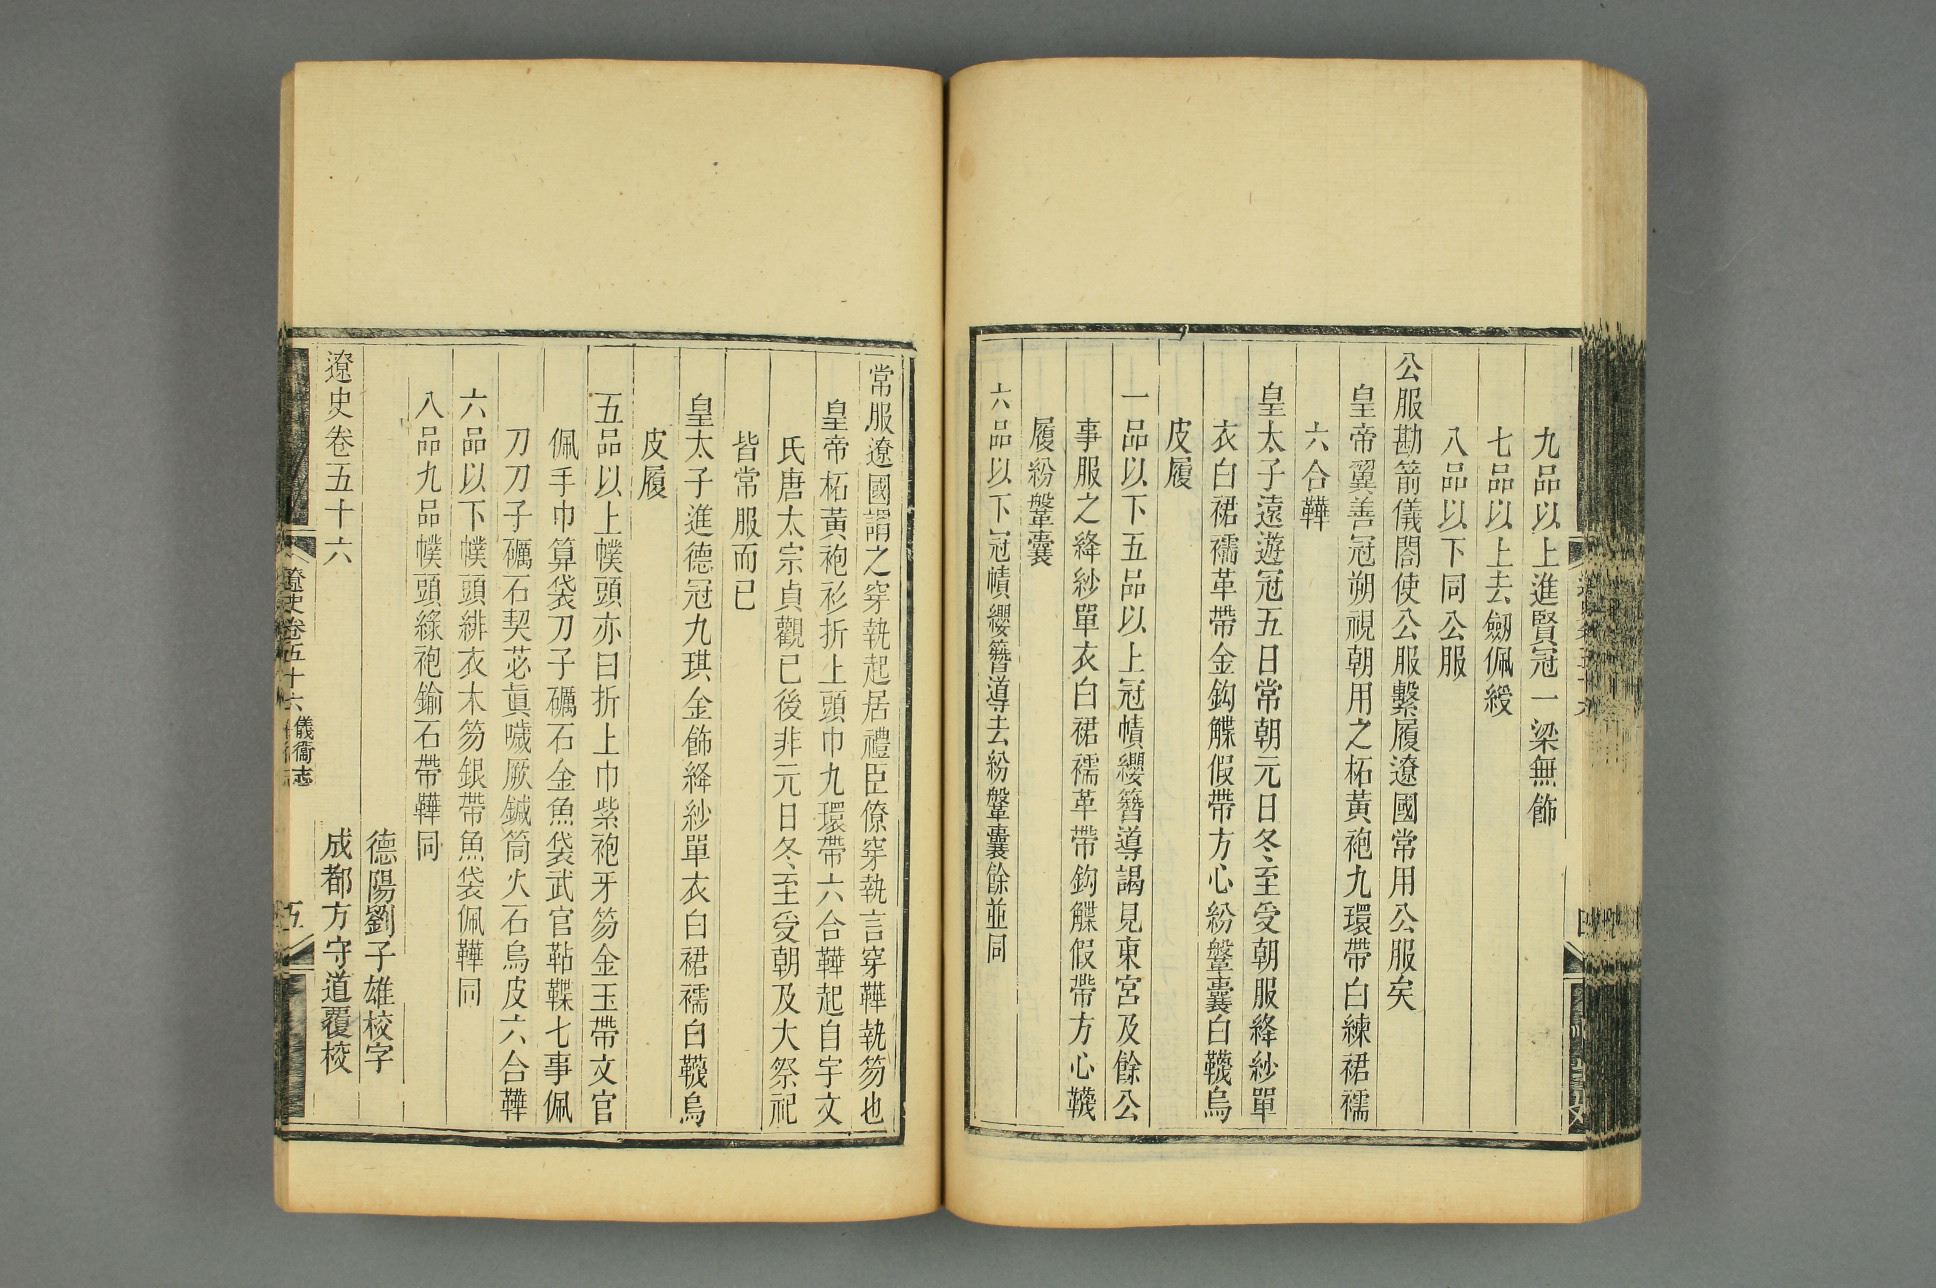 九品以上進賢冠一梁無飾
七品以上去劒佩綬
八品以下同公服
公服勘箭儀閤使公服繫履遼國常用公服矣
皇帝翼善冠朔視朝用之柘黃袍九環帶白練裙襦
六合鞾
皇太子遠遊冠五日常朝元日冬至受朝服絳紗單
衣白裙襦革帶金鉤䚢假帶方心紛鞶囊白韈烏
皮履
一品以下五品以上冠幘纓簪導謁見東宮及餘公
事服之絳紗單衣白裙襦革帶鉤䚢假帶方心韈
履紛鞶囊
六品以下冠幘纓簪導去紛鞶囊餘並同
常服遼國謂之穿執起居禮臣僚穿執言穿鞾執笏也
皇帝柘黃袍衫折上頭巾九環帶六合鞾起自宇文
氏唐太宗貞觀已後非元日冬至受朝及大祭祀
皆常服而已
皇太子進德冠九琪金飾絳紗單衣白裙襦白韈烏
皮履
五品以上幞頭亦曰折上巾紫袍牙笏金玉帶文官
佩手巾算袋刀子礪石金魚袋武官鞊鞢七事佩
刀刀子礪石契苾眞噦厥鍼筒火石烏皮六合鞾
六品以下幞頭緋衣木笏銀帶魚袋佩鞾同
八品九品幞頭綠袍鍮石帶鞾同
德陽劉子雄校字
遼史卷五十六 成都方守道覆校
遼史卷五十六 儀衛志 五